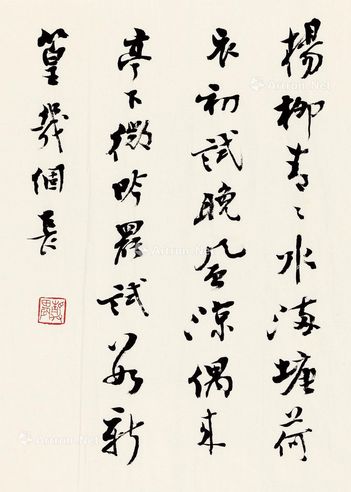 楊柳青々水滿塘荷
衣初試晚風涼偶來
亭下微吟罷試數新
篁幾個長
Artron.Net